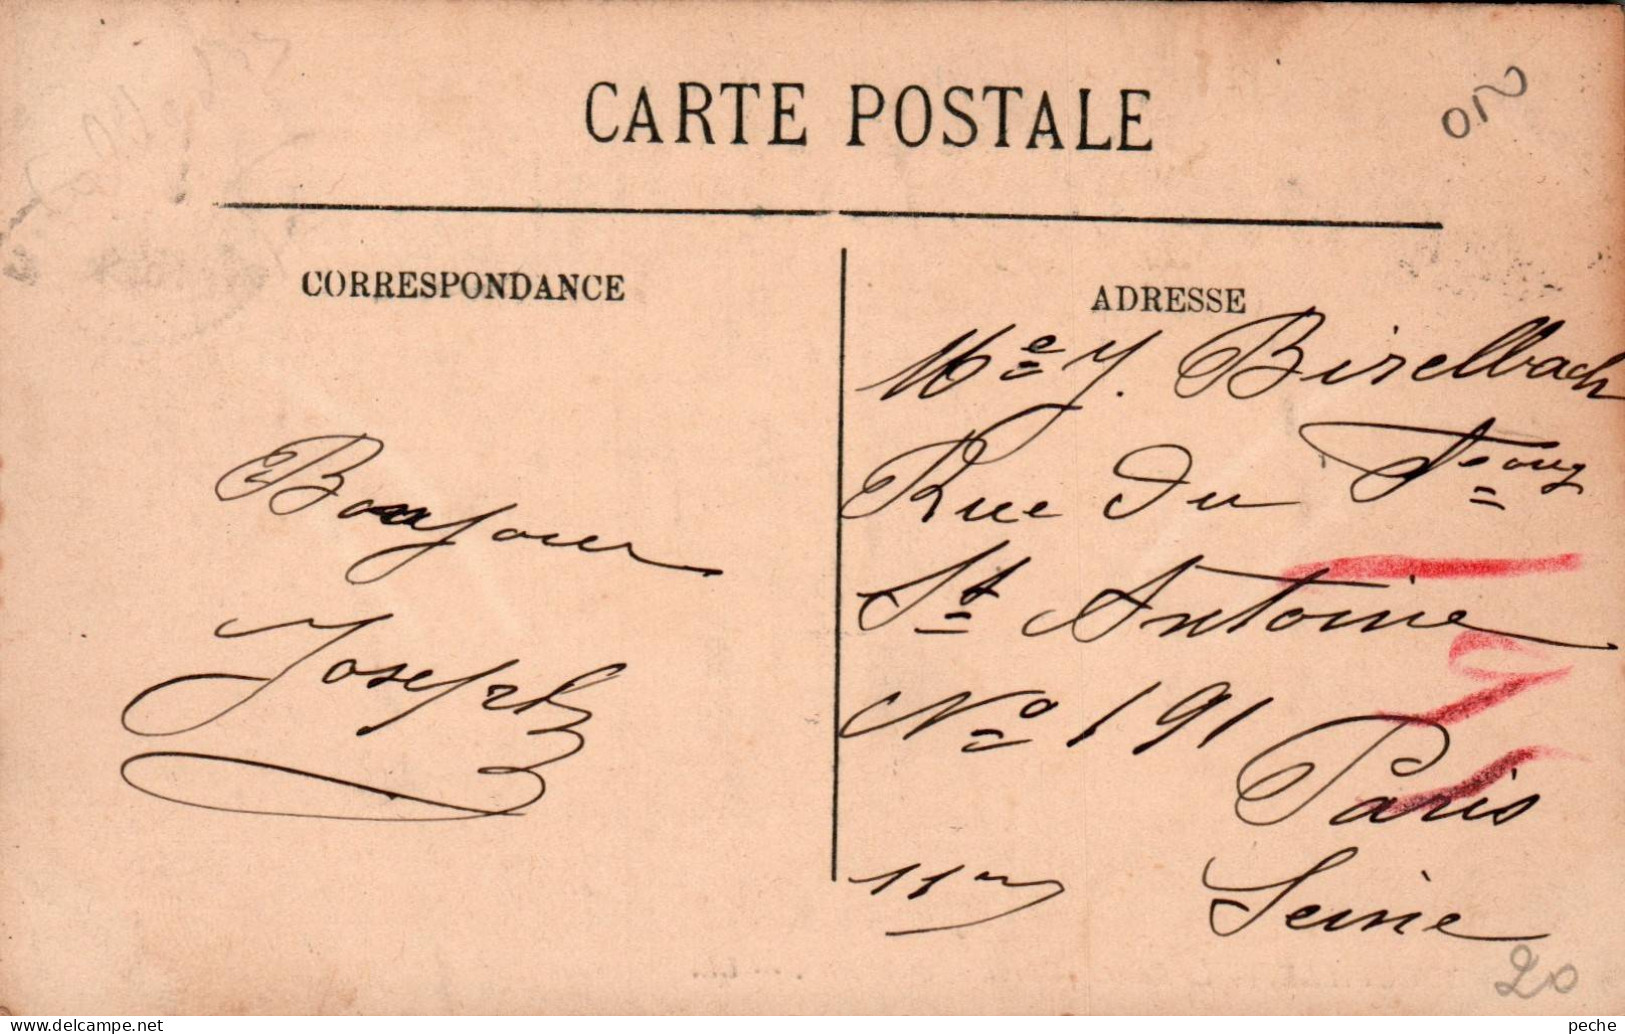 CARTE POSTALE
CORRESPONDANCE
Bonjour
Joseph
ADRESSE
Me J. Birelbach
Rue du Fourg
St Antoine
No 191
Paris
11me
Seine
20
peche